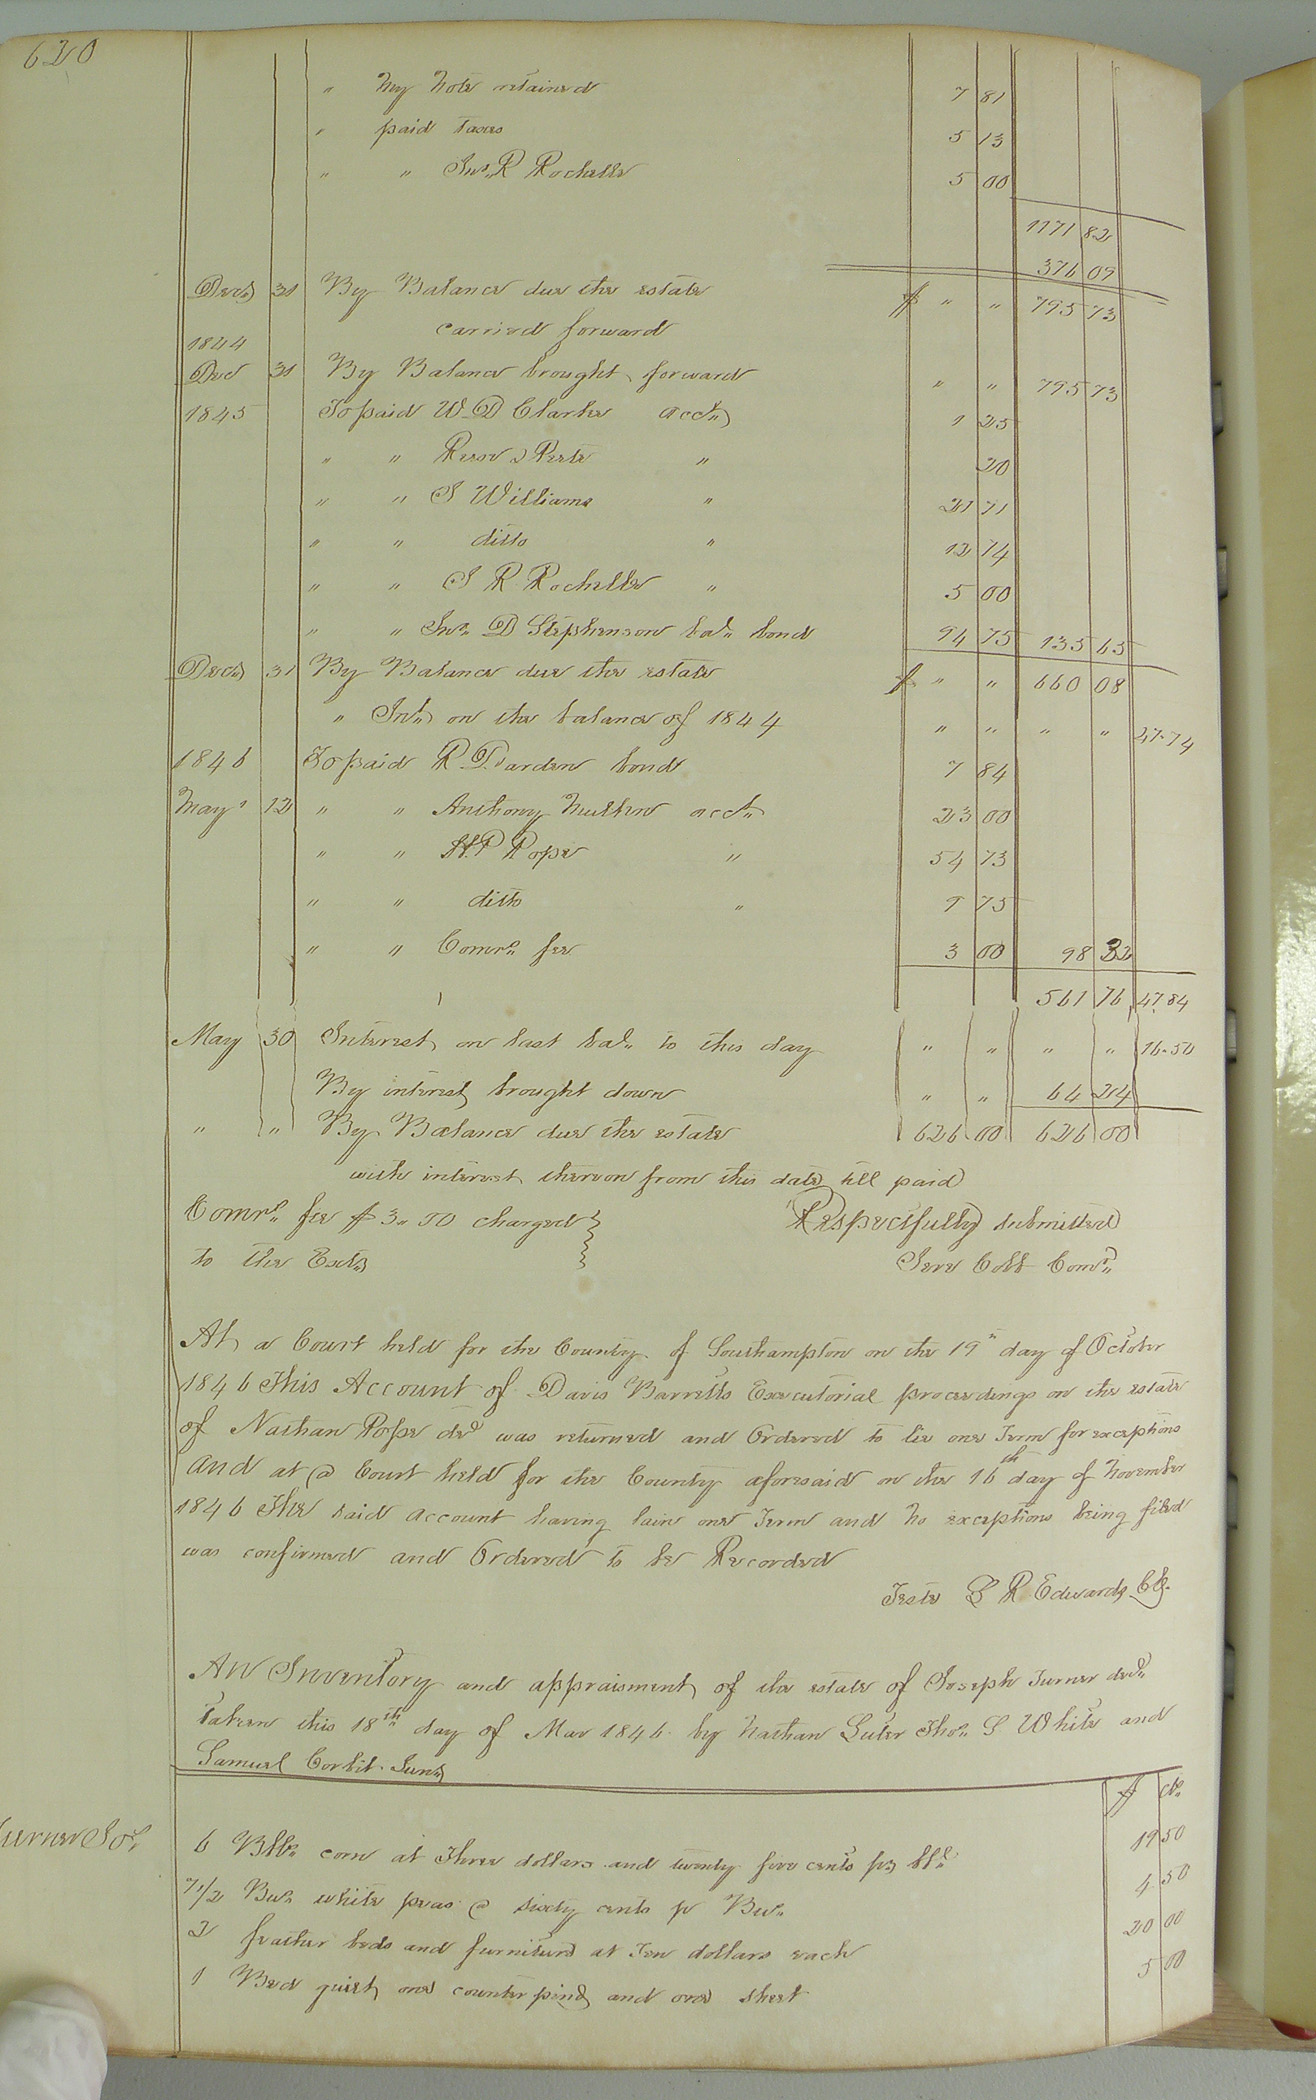 620
" my note retained 7 81
" paid taxes 5 13
" " Jno. R Rochelle 5 00
1171 82
376 09
Decr. 31 By Balance due the estate $ " " 795 73
carried forward
1844
Dec 31 By Balance brought forward " " 795 73
1845 To paid W. D Clarke acct. 1 25
" " Rese & Peete " 20
" " J Williams " 21 71
" " ditto " 12 74
" " J R Rochelle " 5 00
" " Jno. D Stephenson bal. bond 94 75 135 65
Decr. 31 By Balance due the estate $ " " 660 08
" Int. on the balance of 1844 " " " " 47.74
1846 To paid R. Darden bond 7 84
May 12 " " Anthony acct. 23 00
" " H. P Pope " 54 73
" " ditto " 9 75
" " Comrs. fee 3 00 98 32
561 76 47.84
May 30 Interest on last bal. to this day " " " " 16.50
By interest brought down " " 64 24
" " By Balance due the estate 626 00 626 00
with interest thereon from this date till paid
Comrs. fee $3.00 charged Respectfully submitted
to the Extr. Jere Cobb Comr.
At a Court held for the County of Southampton on the 19" day of October
1846 This Account of Davis Barretts Executorial proceedings on the estate
of Nathan Pope decd was returned and Ordered to lie one Term for exceptions
and at a Court held for the County aforesaid on the 16th day of November
1846 The said account having lain one Term and no exceptions being filed
was confirmed and Ordered to be Recorded
Teste L R Edwards Clk.
An Inventory and appraisment of the estate of Joseph Turner decd.
taken this 18th day of Mar 1846 by Nathan Luter Thos. S White and
Samuel Corbit Junr.
$ cts.
Turner Jos.
6 Bbls. corn at Three dollars and twenty five cents pr bbl. 19 50
7 1/2 Bus. white peas @ sixty cents pr Bus. 4 50
2 feather beds and furniture at Ten dollars each 20 00
1 Bed quilt one counterpine and one sheet 5 00